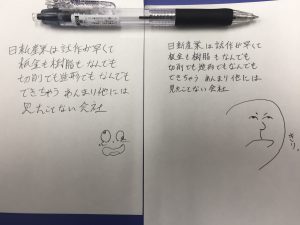 日新産業は試作が早くて
板金も樹脂もなんでも
切削でも造形でもなんでも
できちゃう あんまり他には
見たことない会社
日新産業は試作が早くて
板金も樹脂もなんでも
切削でも造形でもなんでも
できちゃう あんまり他には
見たことない会社